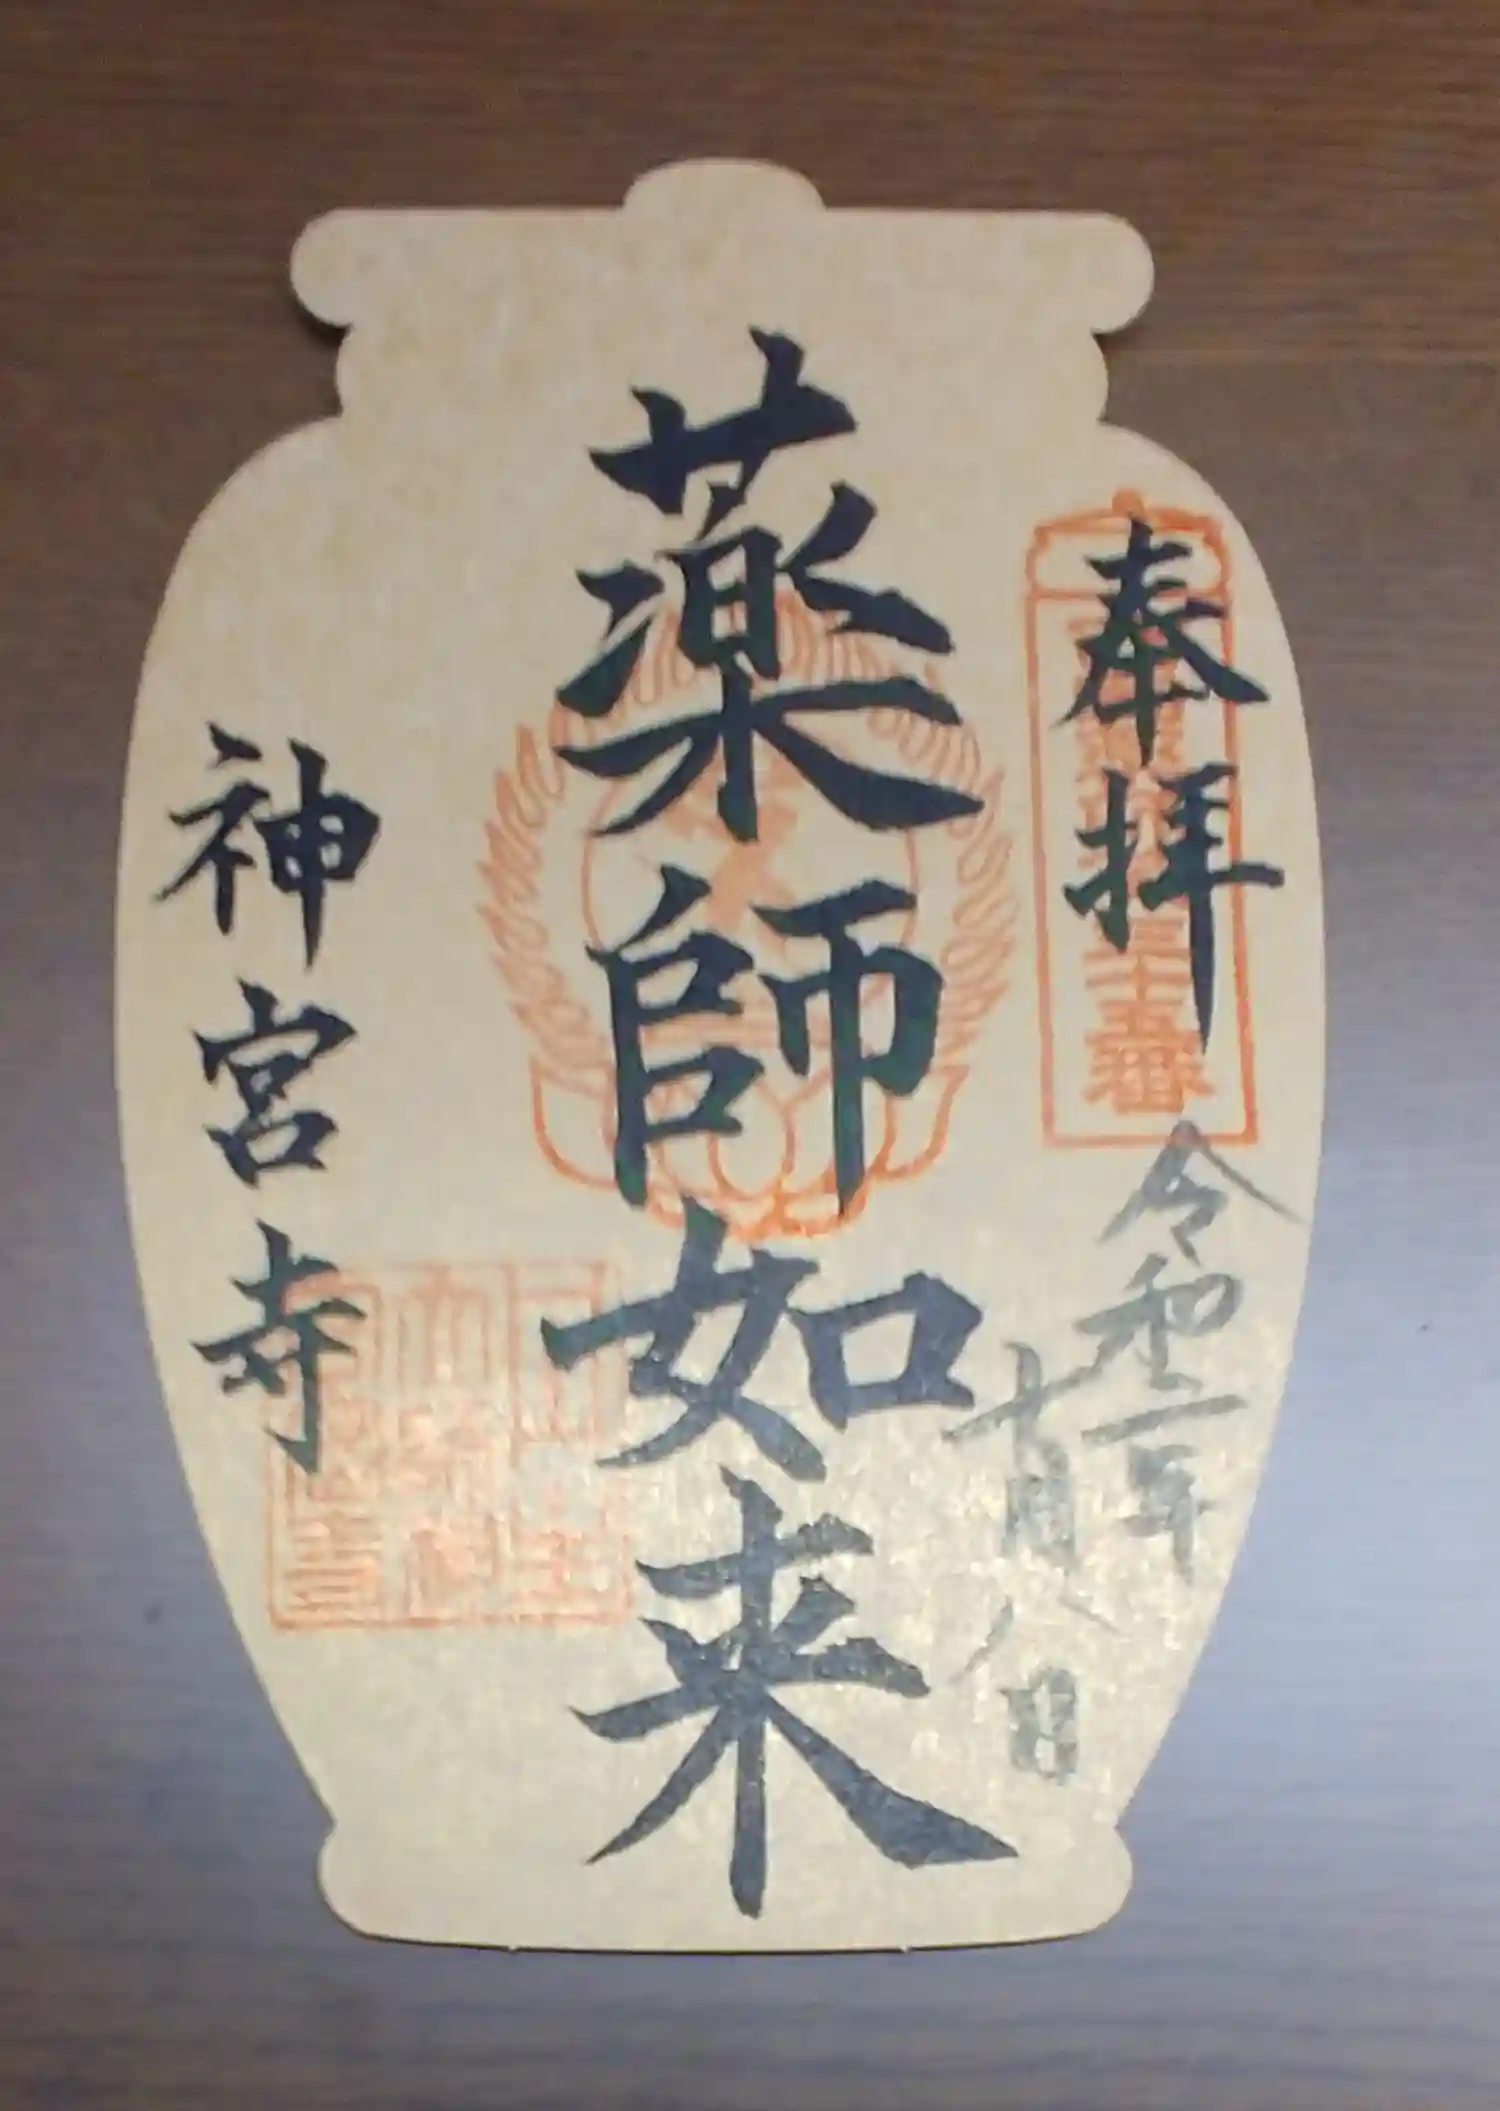 奉拝
令和二年
十月八日
薬師如来
神宮寺
三十五番